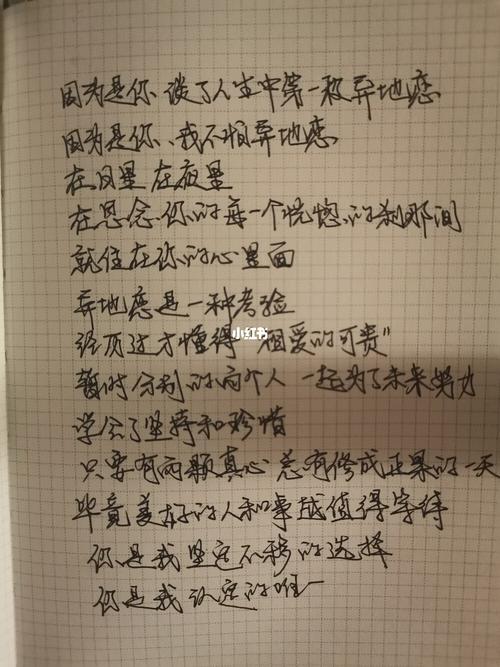 因为是你、谈了人生中第一段异地恋
因为是你、我不怕异地恋
在风里 在夜里
在思念你的每一个恍惚的刹那间
就住在你的心里面
异地恋是一种考验
经历过才懂得“相爱的可贵”
小红书
暂时分别的两个人 一起为了未来努力
学会了坚持和珍惜
只要有两颗真心总有修成正果的一天
毕竟美好的人和事越值得等待
你是我坚定不移的选择
你是我认定的唯一